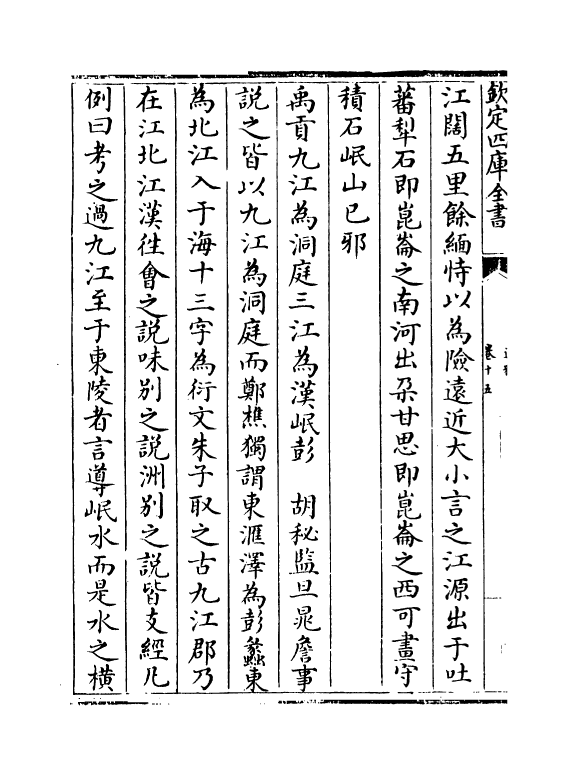 欽定四庫全書
卷十五
江闊五里餘緬恃以為險遠近大小言之江源出于吐
蕃犁石即崑崙之南河出朶甘思即崑崙之西可畫守
積石岷山已邪
禹貢九江為洞庭三江為漢岷彭　胡秘監旦晁詹事
說之皆以九江為洞庭而鄭樵獨謂東滙澤為彭蠡東
為北江入于海十三字為衍文朱子取之古九江郡乃
在江北江漢徃會之說味别之說洲别之說皆支經凡
例曰考之過九江至于東陵者言導岷水而是水之橫